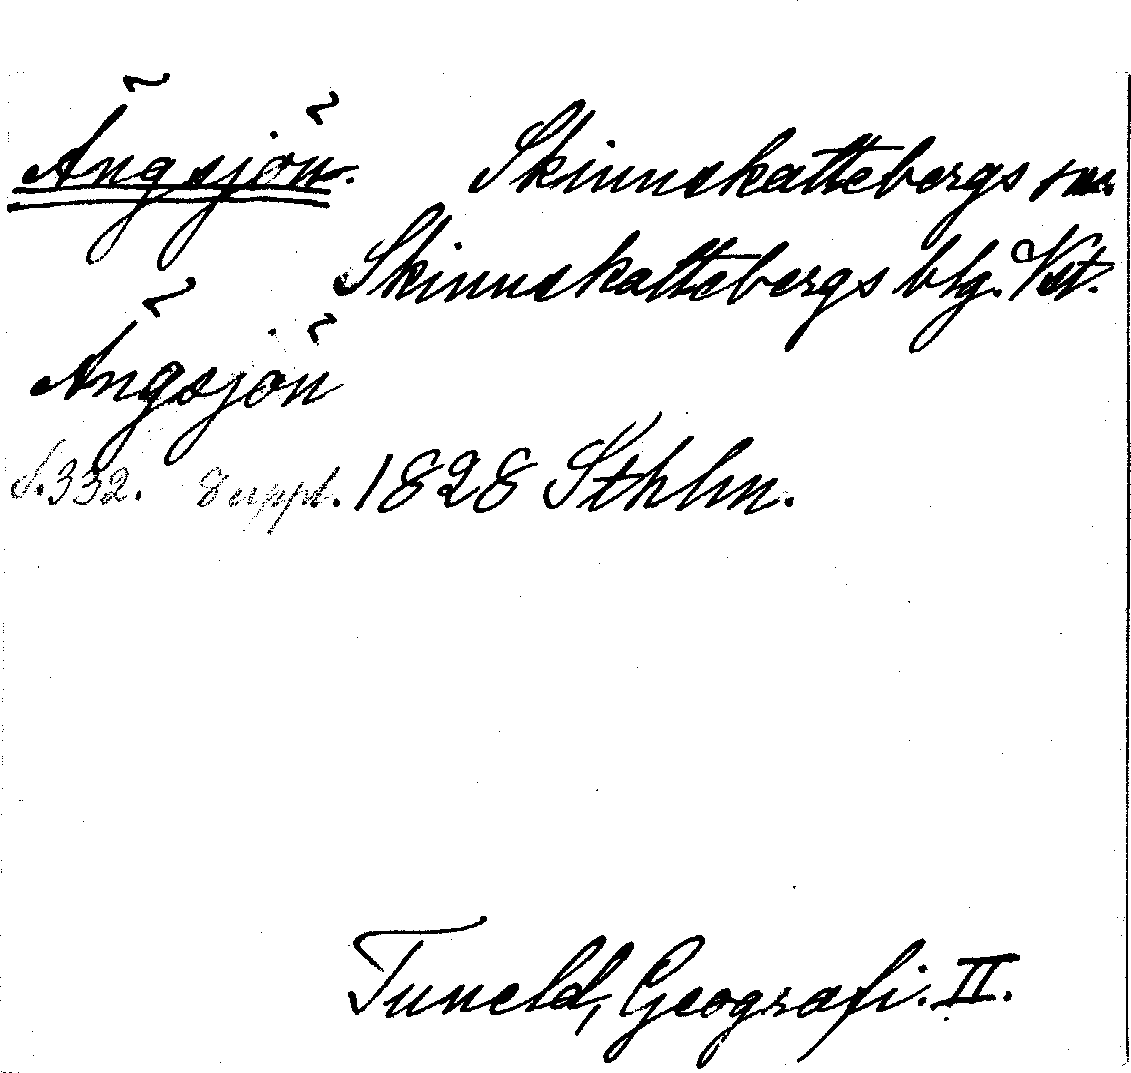 Ängsjön. Skinnskattebergs sn.
Skinnskattebergs blg. Vst.
Ängsjön
S. 332. Suppl. 1828 Sthlm.
Tuneld, Geografi. II.